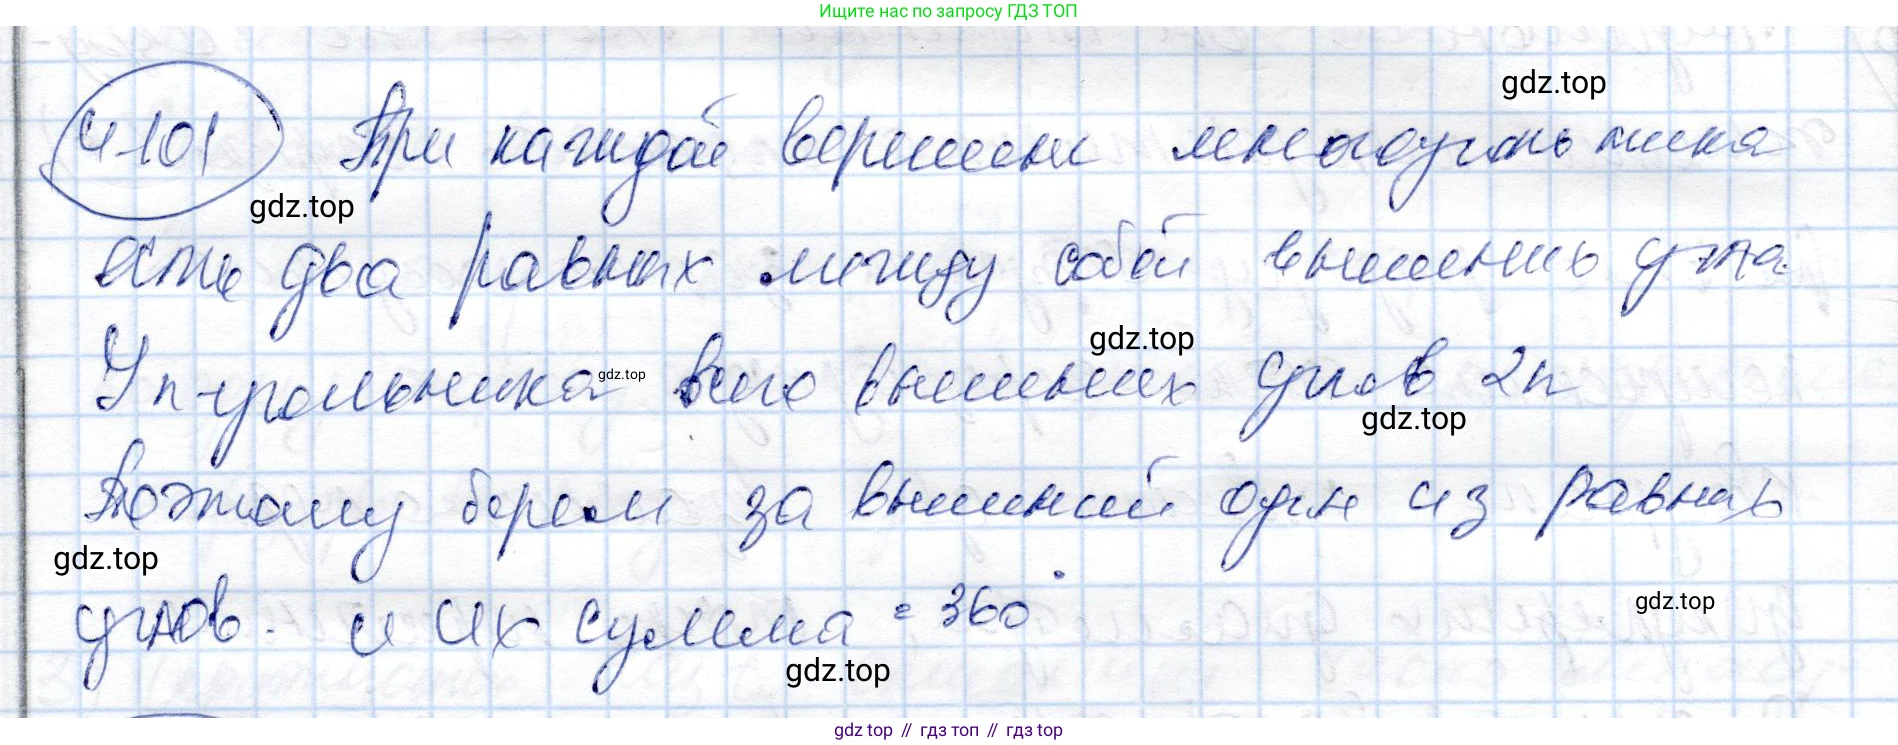 Ищите нас по запросу ГДЗ ТОП
gdz.top
4.101 При каждой вершине многоугольника
gdz.top
есть два равных между собой внешних угла.
gdz.top
У n-угольника всего внешних углов 2n
gdz.top
gdz.top
Поэтому берем за внешний один из равных
gdz.top
углов. и их сумма = 360°
gdz.top
gdz.top
gdz top // гдз топ // гдз top